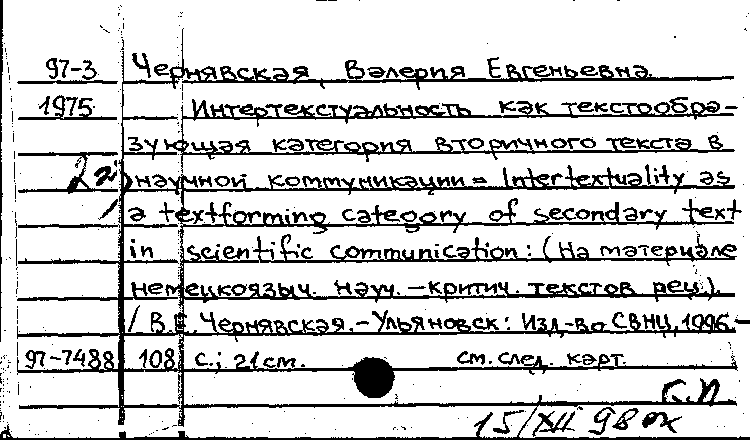 97-3 Чернявская, Валерия Евгеньевна.
1975 Интертекстуальность как текстообра-
зующая категория вторичного текста в
научной коммуникации = Intertextuality as
a textforming category of secondary text
in scientific communication: (На материале
немецкоязыч. науч.-критич. текстов рец.).
/ В.Е. Чернявская.-Ульяновск: Изд-во СВНЦ, 1996.-
97-7488 108 с.; 21см. см. след. карт.
К.П.
15/XII 98